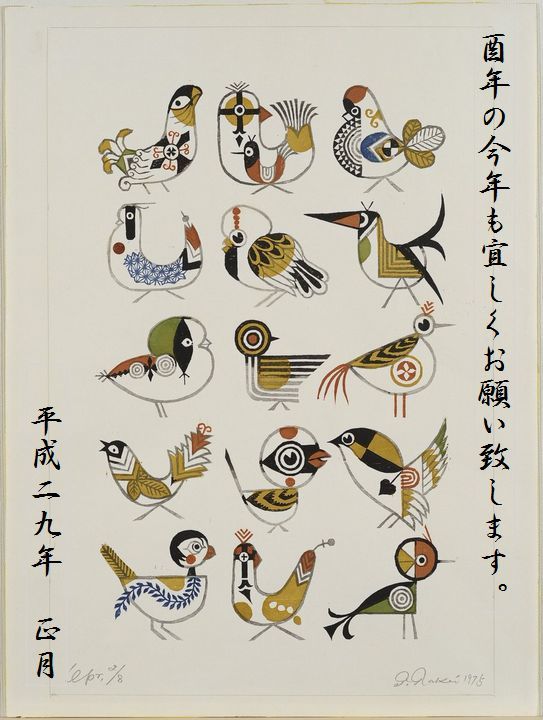 酉年の今年も宜しくお願い致します。
平成二九年 正月
1975